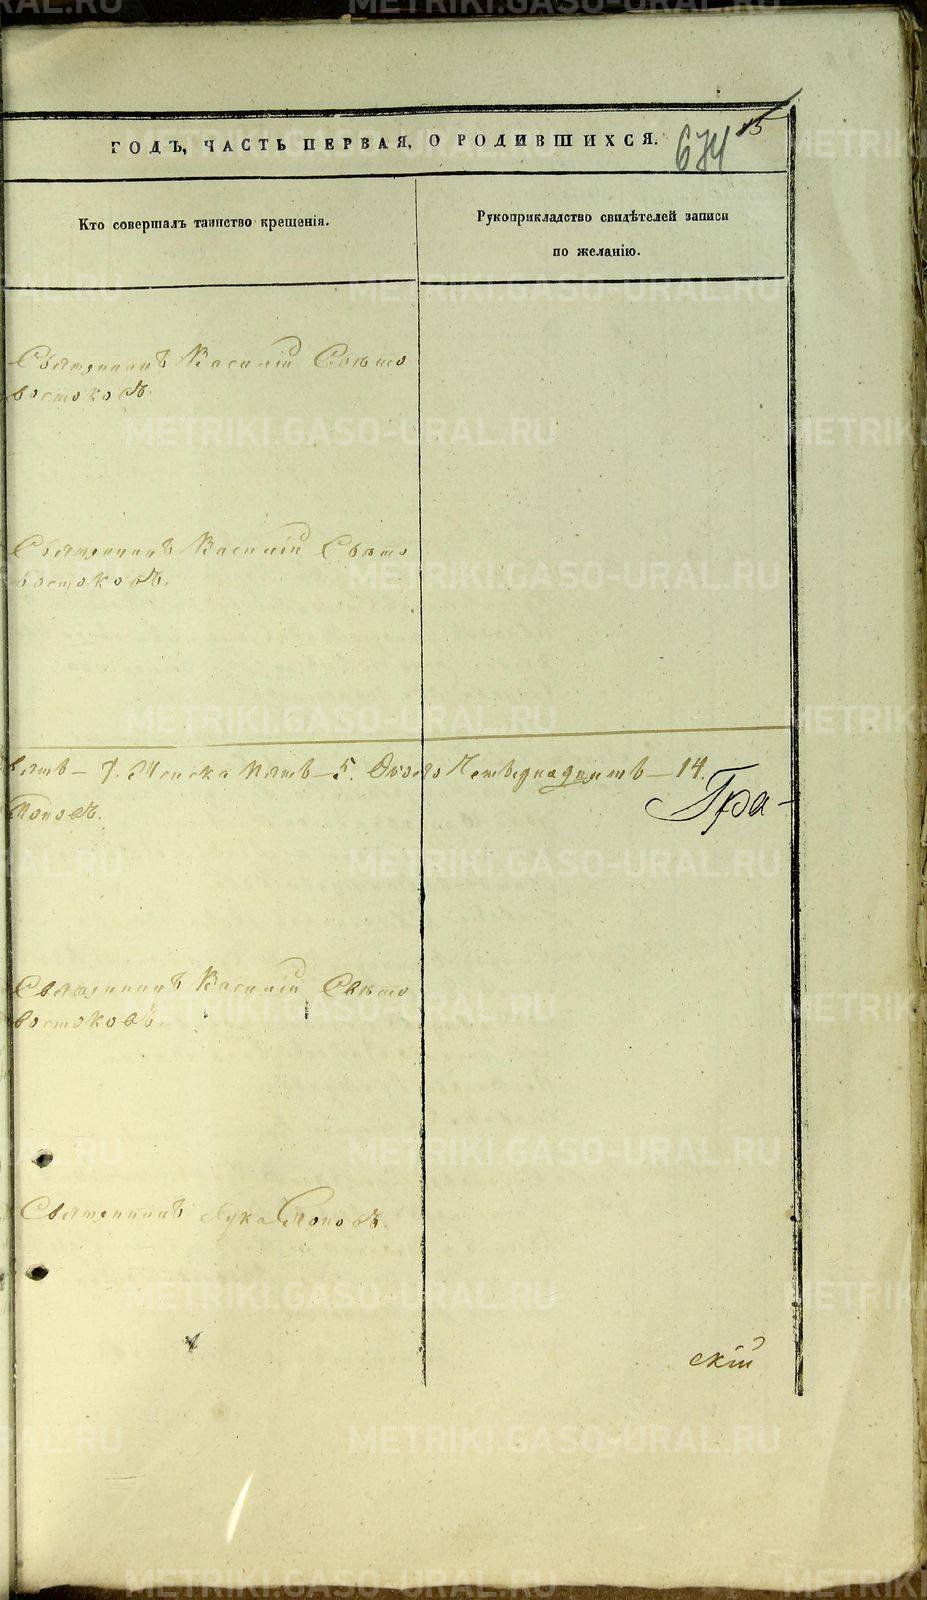 15
ГОДЪ, ЧАСТЬ ПЕРВАЯ, О РОДИВШИХСЯ. 674
Кто совершалъ таинство крещенія.
Рукоприкладство свидѣтелей записи
по желанію.
Священникъ Василій Свѣто
востоковъ.
Священникъ Василій Свѣто
востоковъ.
7. Женска пять – 5. Обоего Четырнадцать – 14.
Поповъ.
Гра-
Священникъ Василій Свѣто
востоковъ.
Священникъ Лука Поповъ.
скій
METRIKI.GASO-URAL.RU